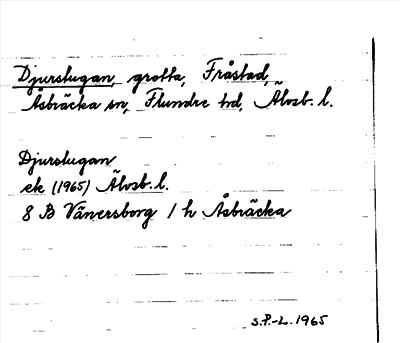 Djurstugan, grotta, Fråstad,
Åsbräcka sn, Flundre hd, Älvsb. l.
Djurstugan
ek (1965) Älvsb. l.
8 B Vänersborg 1 h Åsbräcka
S.P.-L. 1965